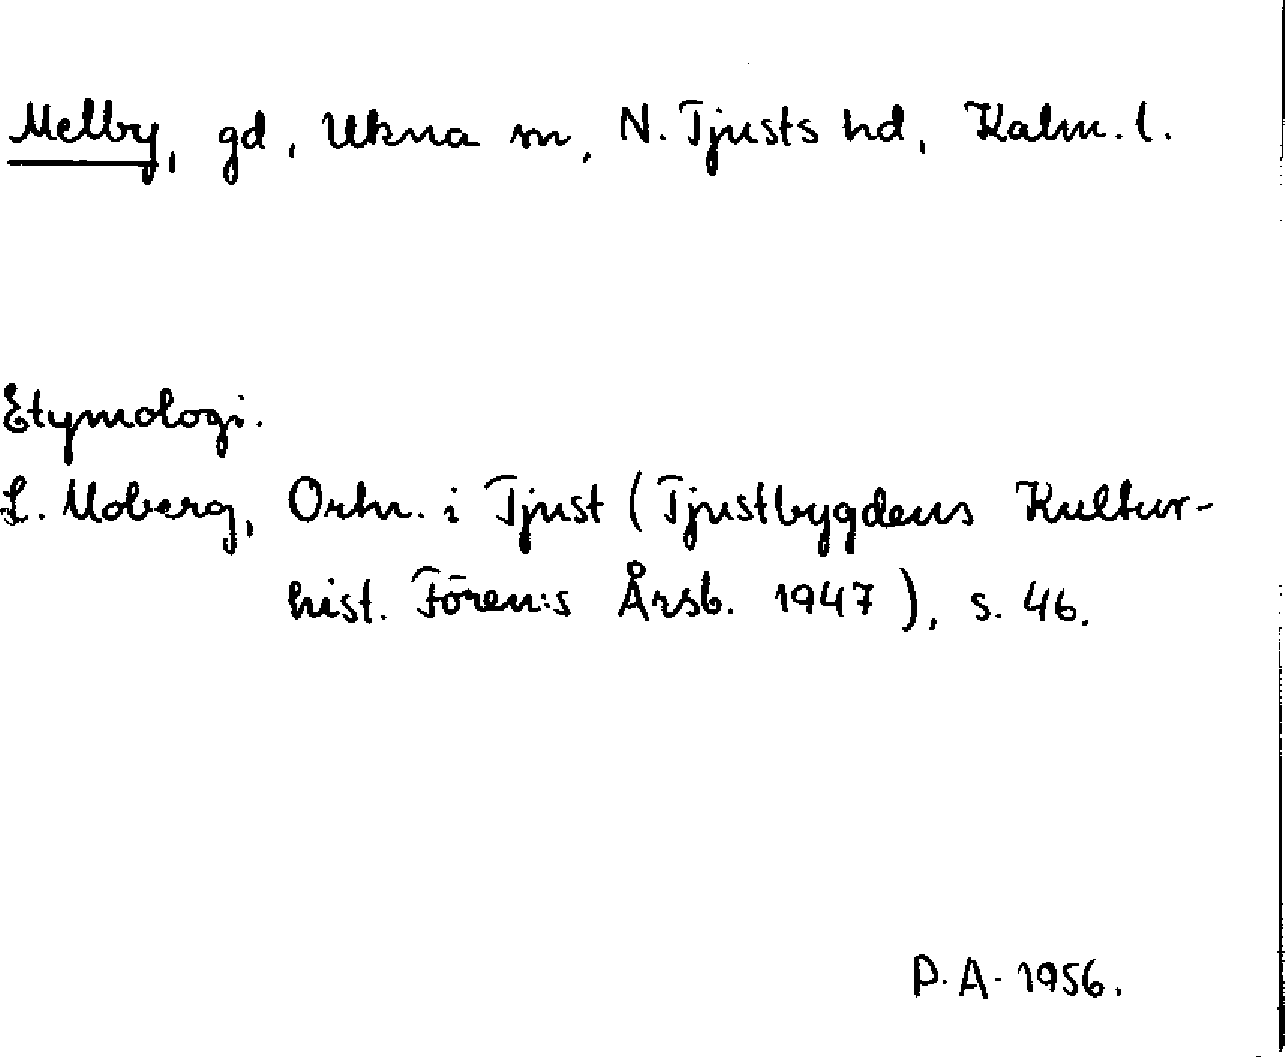 Melby, gd, Ukna sn, N. Tjusts hd, Kalm. l.
Etymologi.
L. Moberg, Ortn. i Tjust (Tjustbygdens Kultur-
hist. Fören:s Årsb. 1947), s. 46.
P. A. 1956.